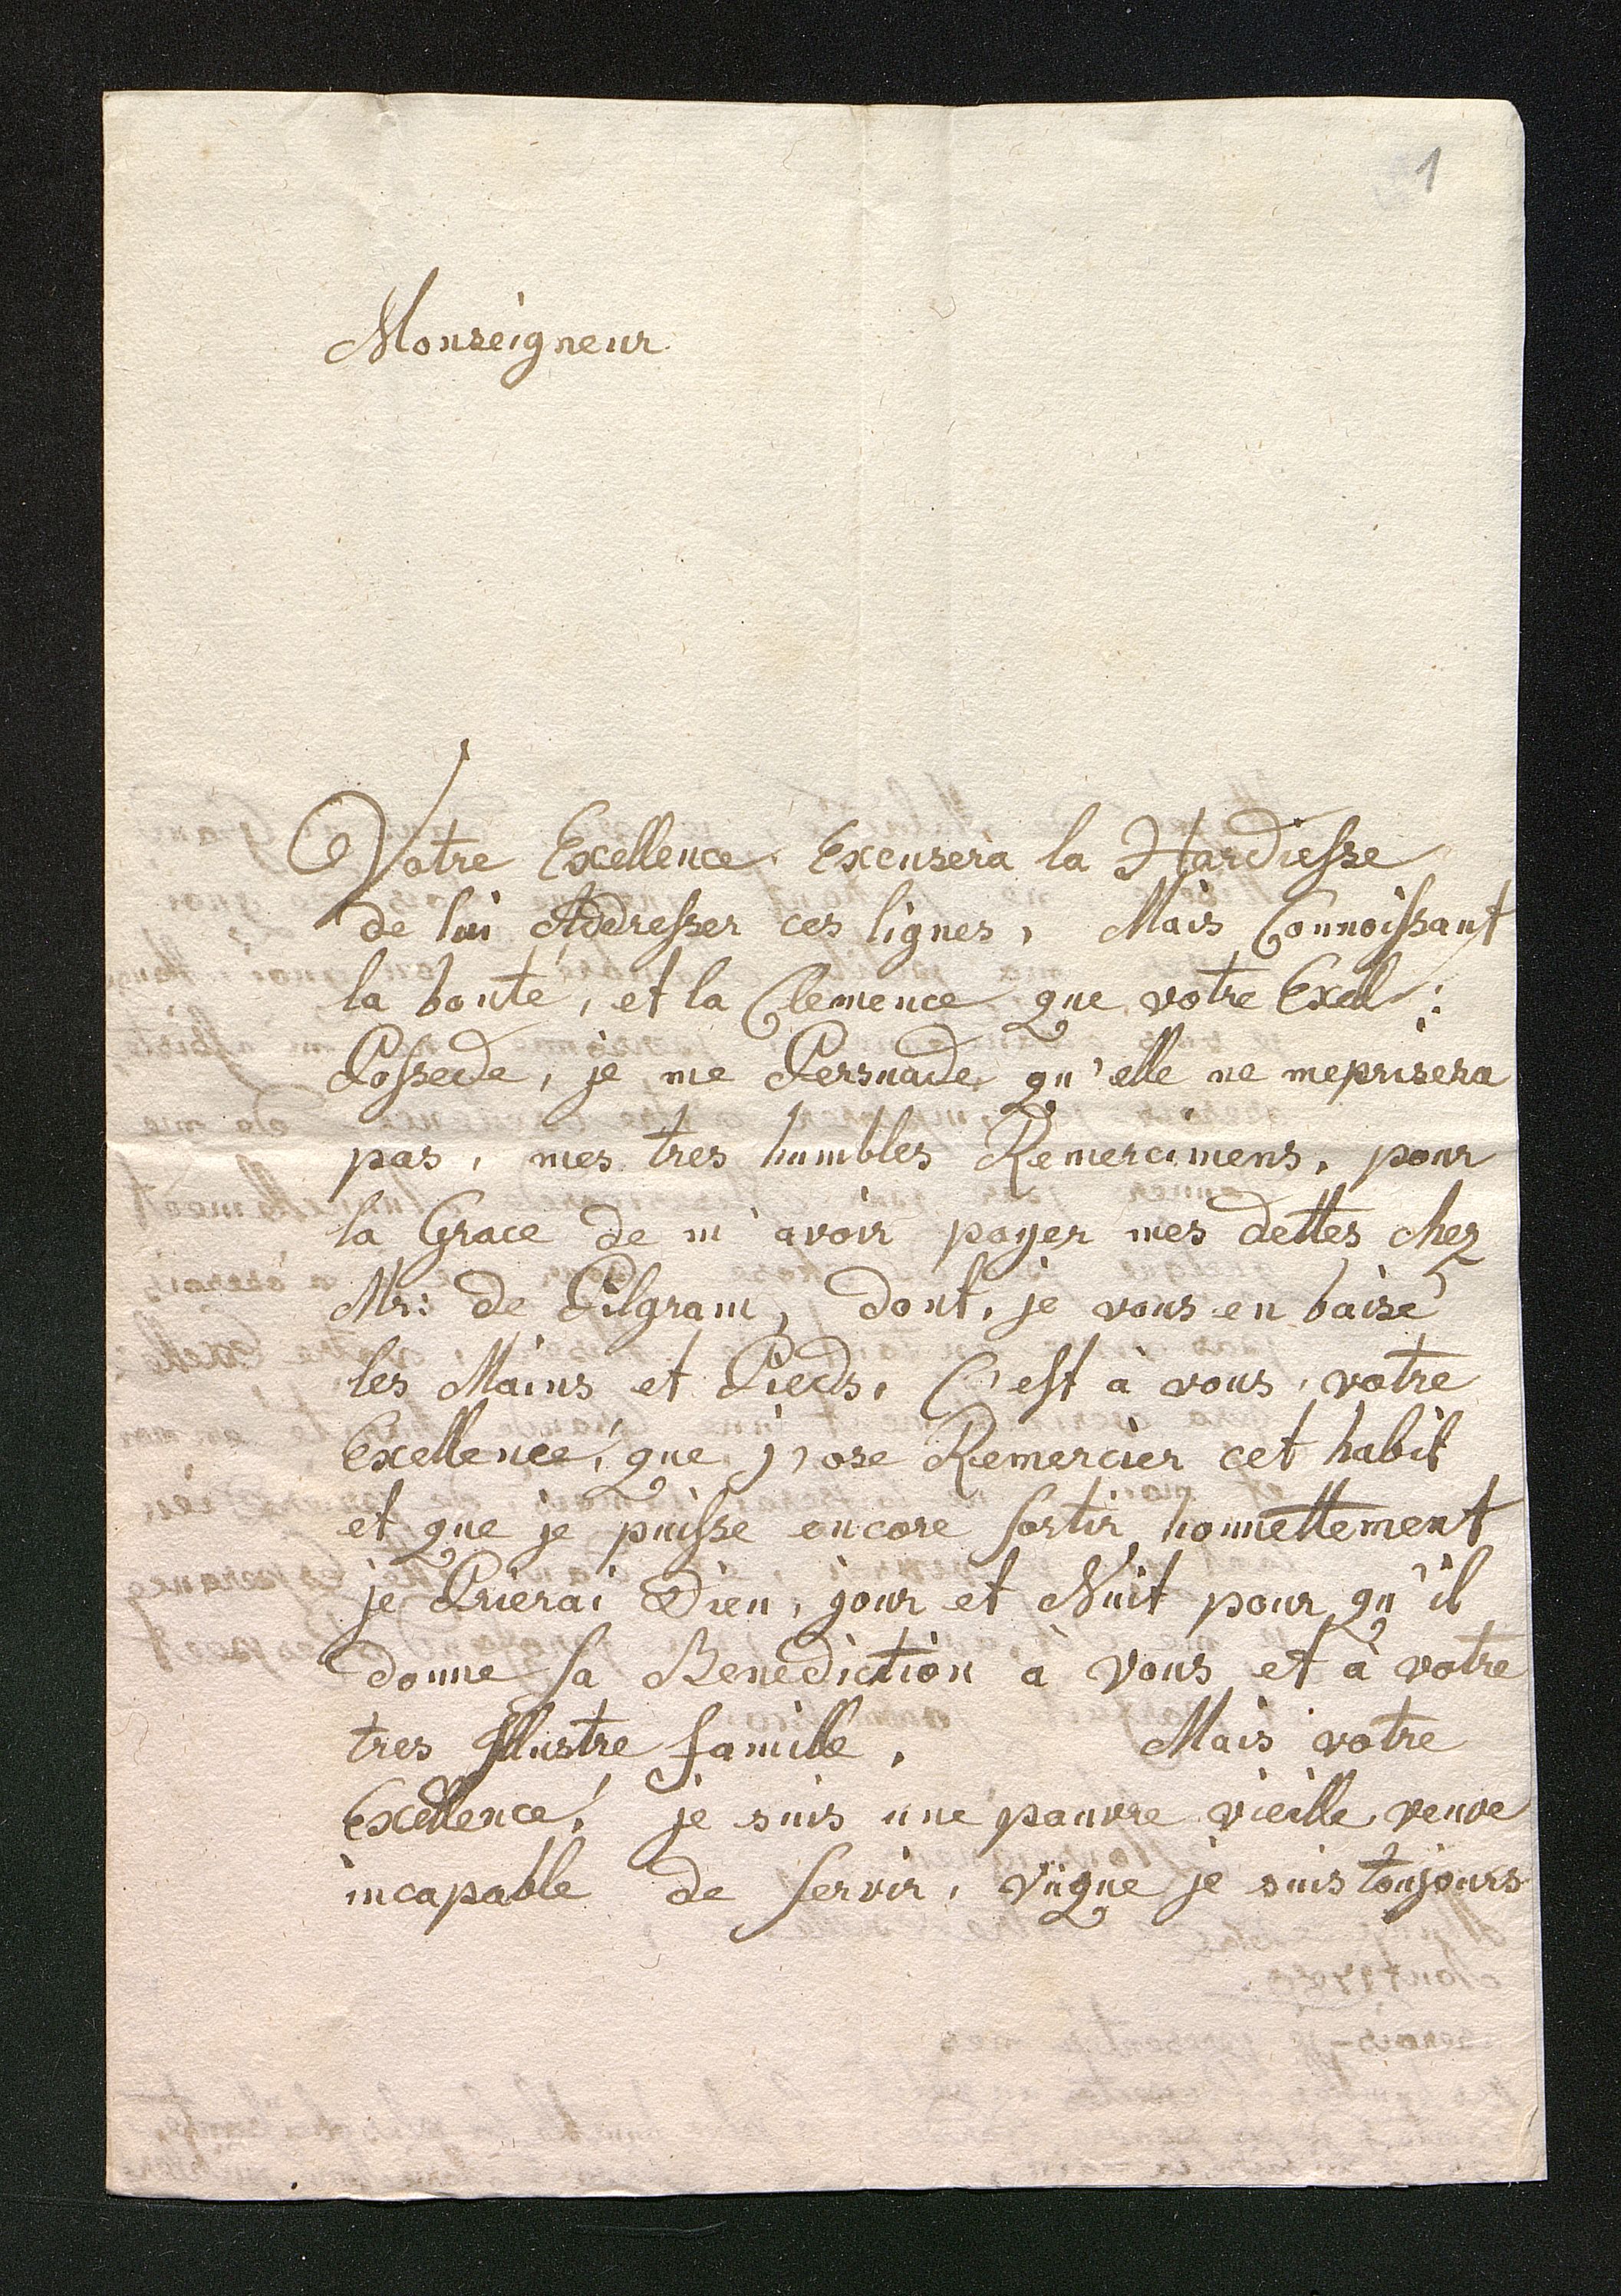 1
Monseigneur
Votre Excellence Excusera la Hardiesse
de lui Addresser ces lignes, Mais Connoissant
la bonté, et la Clemence que votre Excell:
Possede, je me Persuade qu'elle ne meprisera
pas, mes tres humbles Remercimens, pour
la Grace de m'avoir payer mes dettes chez
Mr: de Pilgram, dont, je vous en baise
les Mains et Pieds, C'est à vous, votre
Exellence, que j'ose Remercier cet habit
et que je puisse encore sortir honnettement
je Prierai Dieu, jour et Nuit pour qu'il
donne sa Benediction à Vous et à votre
tres Illustre famille, Mais votre
Excellence! je suis une pauvre vieille veuve
incapable de servir, vûque je suis toujours